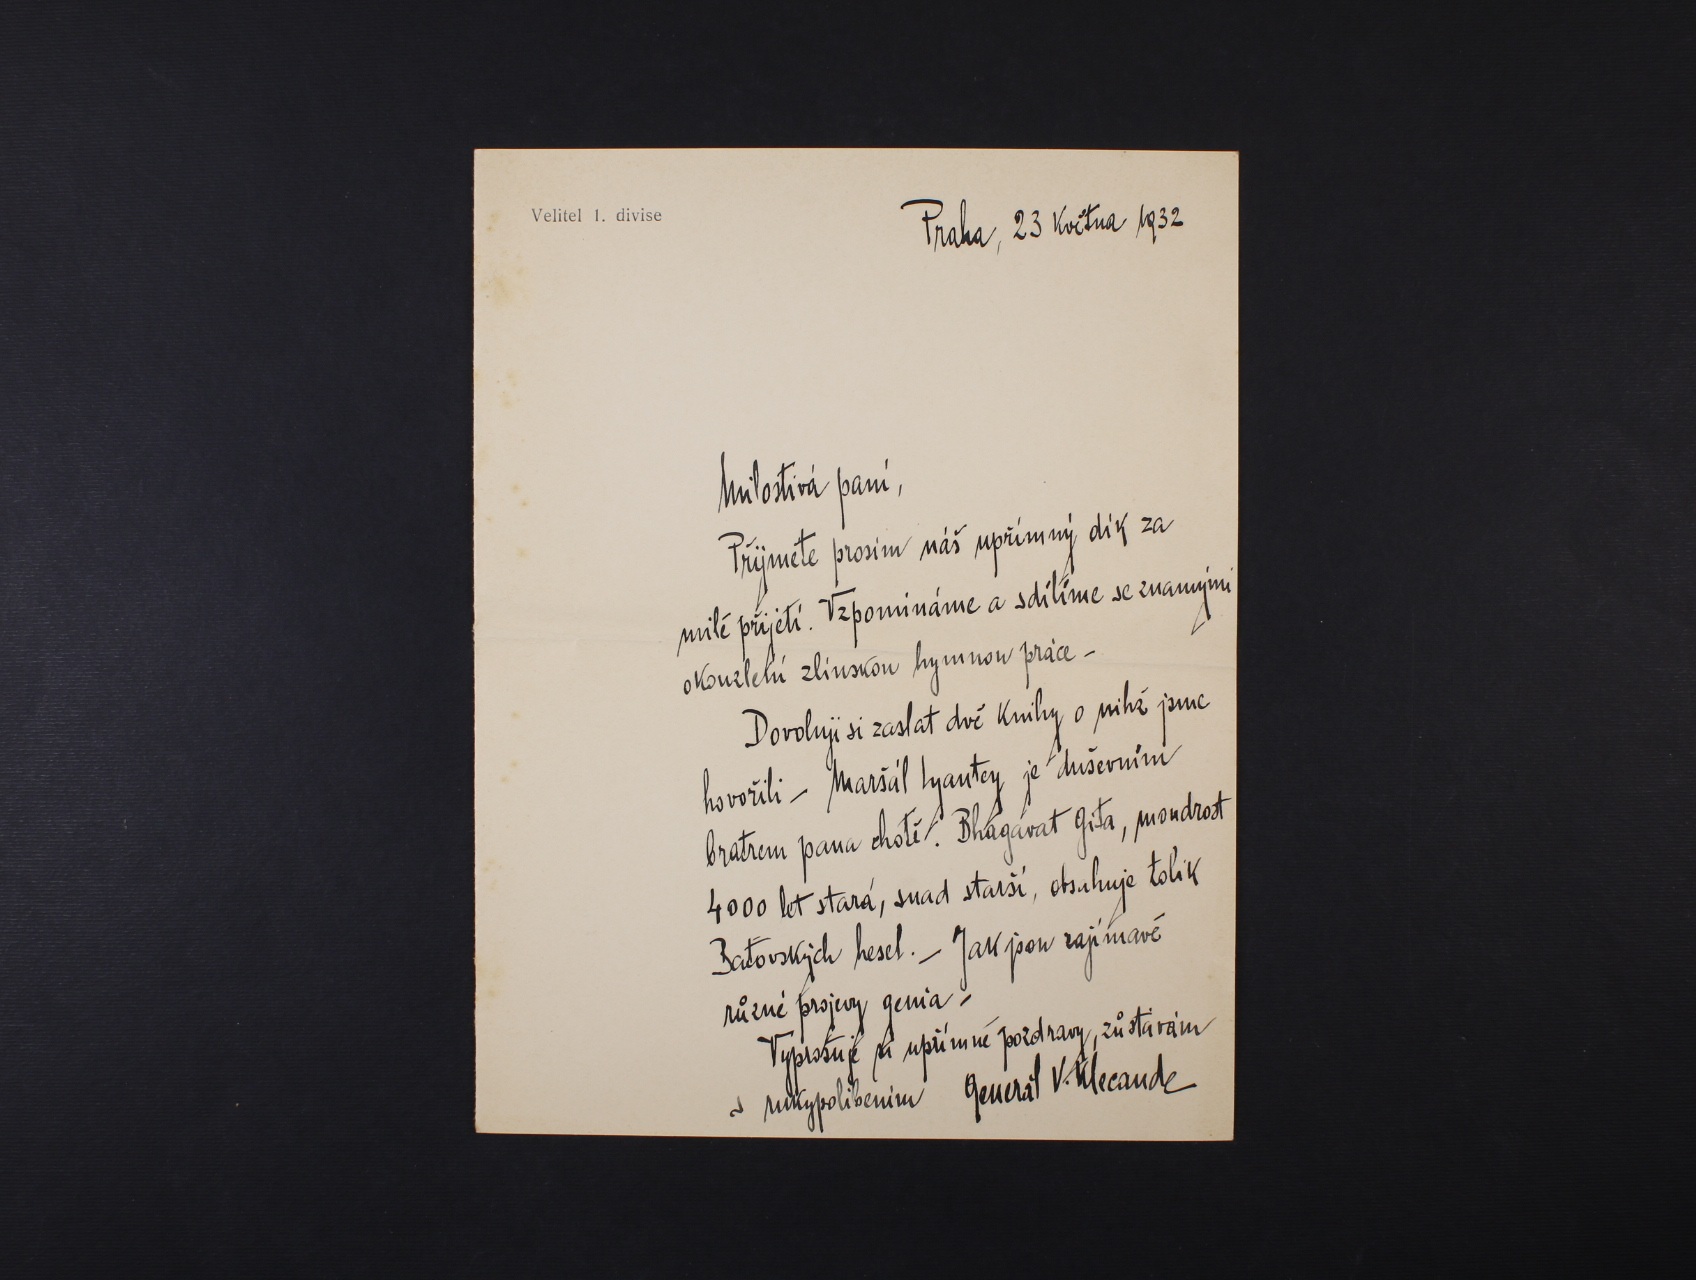 Velitel 1. divise
Praha, 23 května 1932
Milostivá paní,
Přijměte prosím náš upřímný dík za
milé přijetí. Vzpomínáme a sdílíme se známými
okouzlení zlínskou hymnou práce –
Dovoluji si zaslat dvě knihy o nihž jsme
hovořili – Maršál Lyautey je duševním
bratrem pana chotě. Bhagavat Gita, moudrost
4000 let stará, snad starší, obsahuje tolik
Baťovských hesel. – Jak jsou zajímavé
různé projevy genia –
Vyprošuje si upřímné pozdravy, zůstávám
s rukypolíbením Generál V. Klecanda